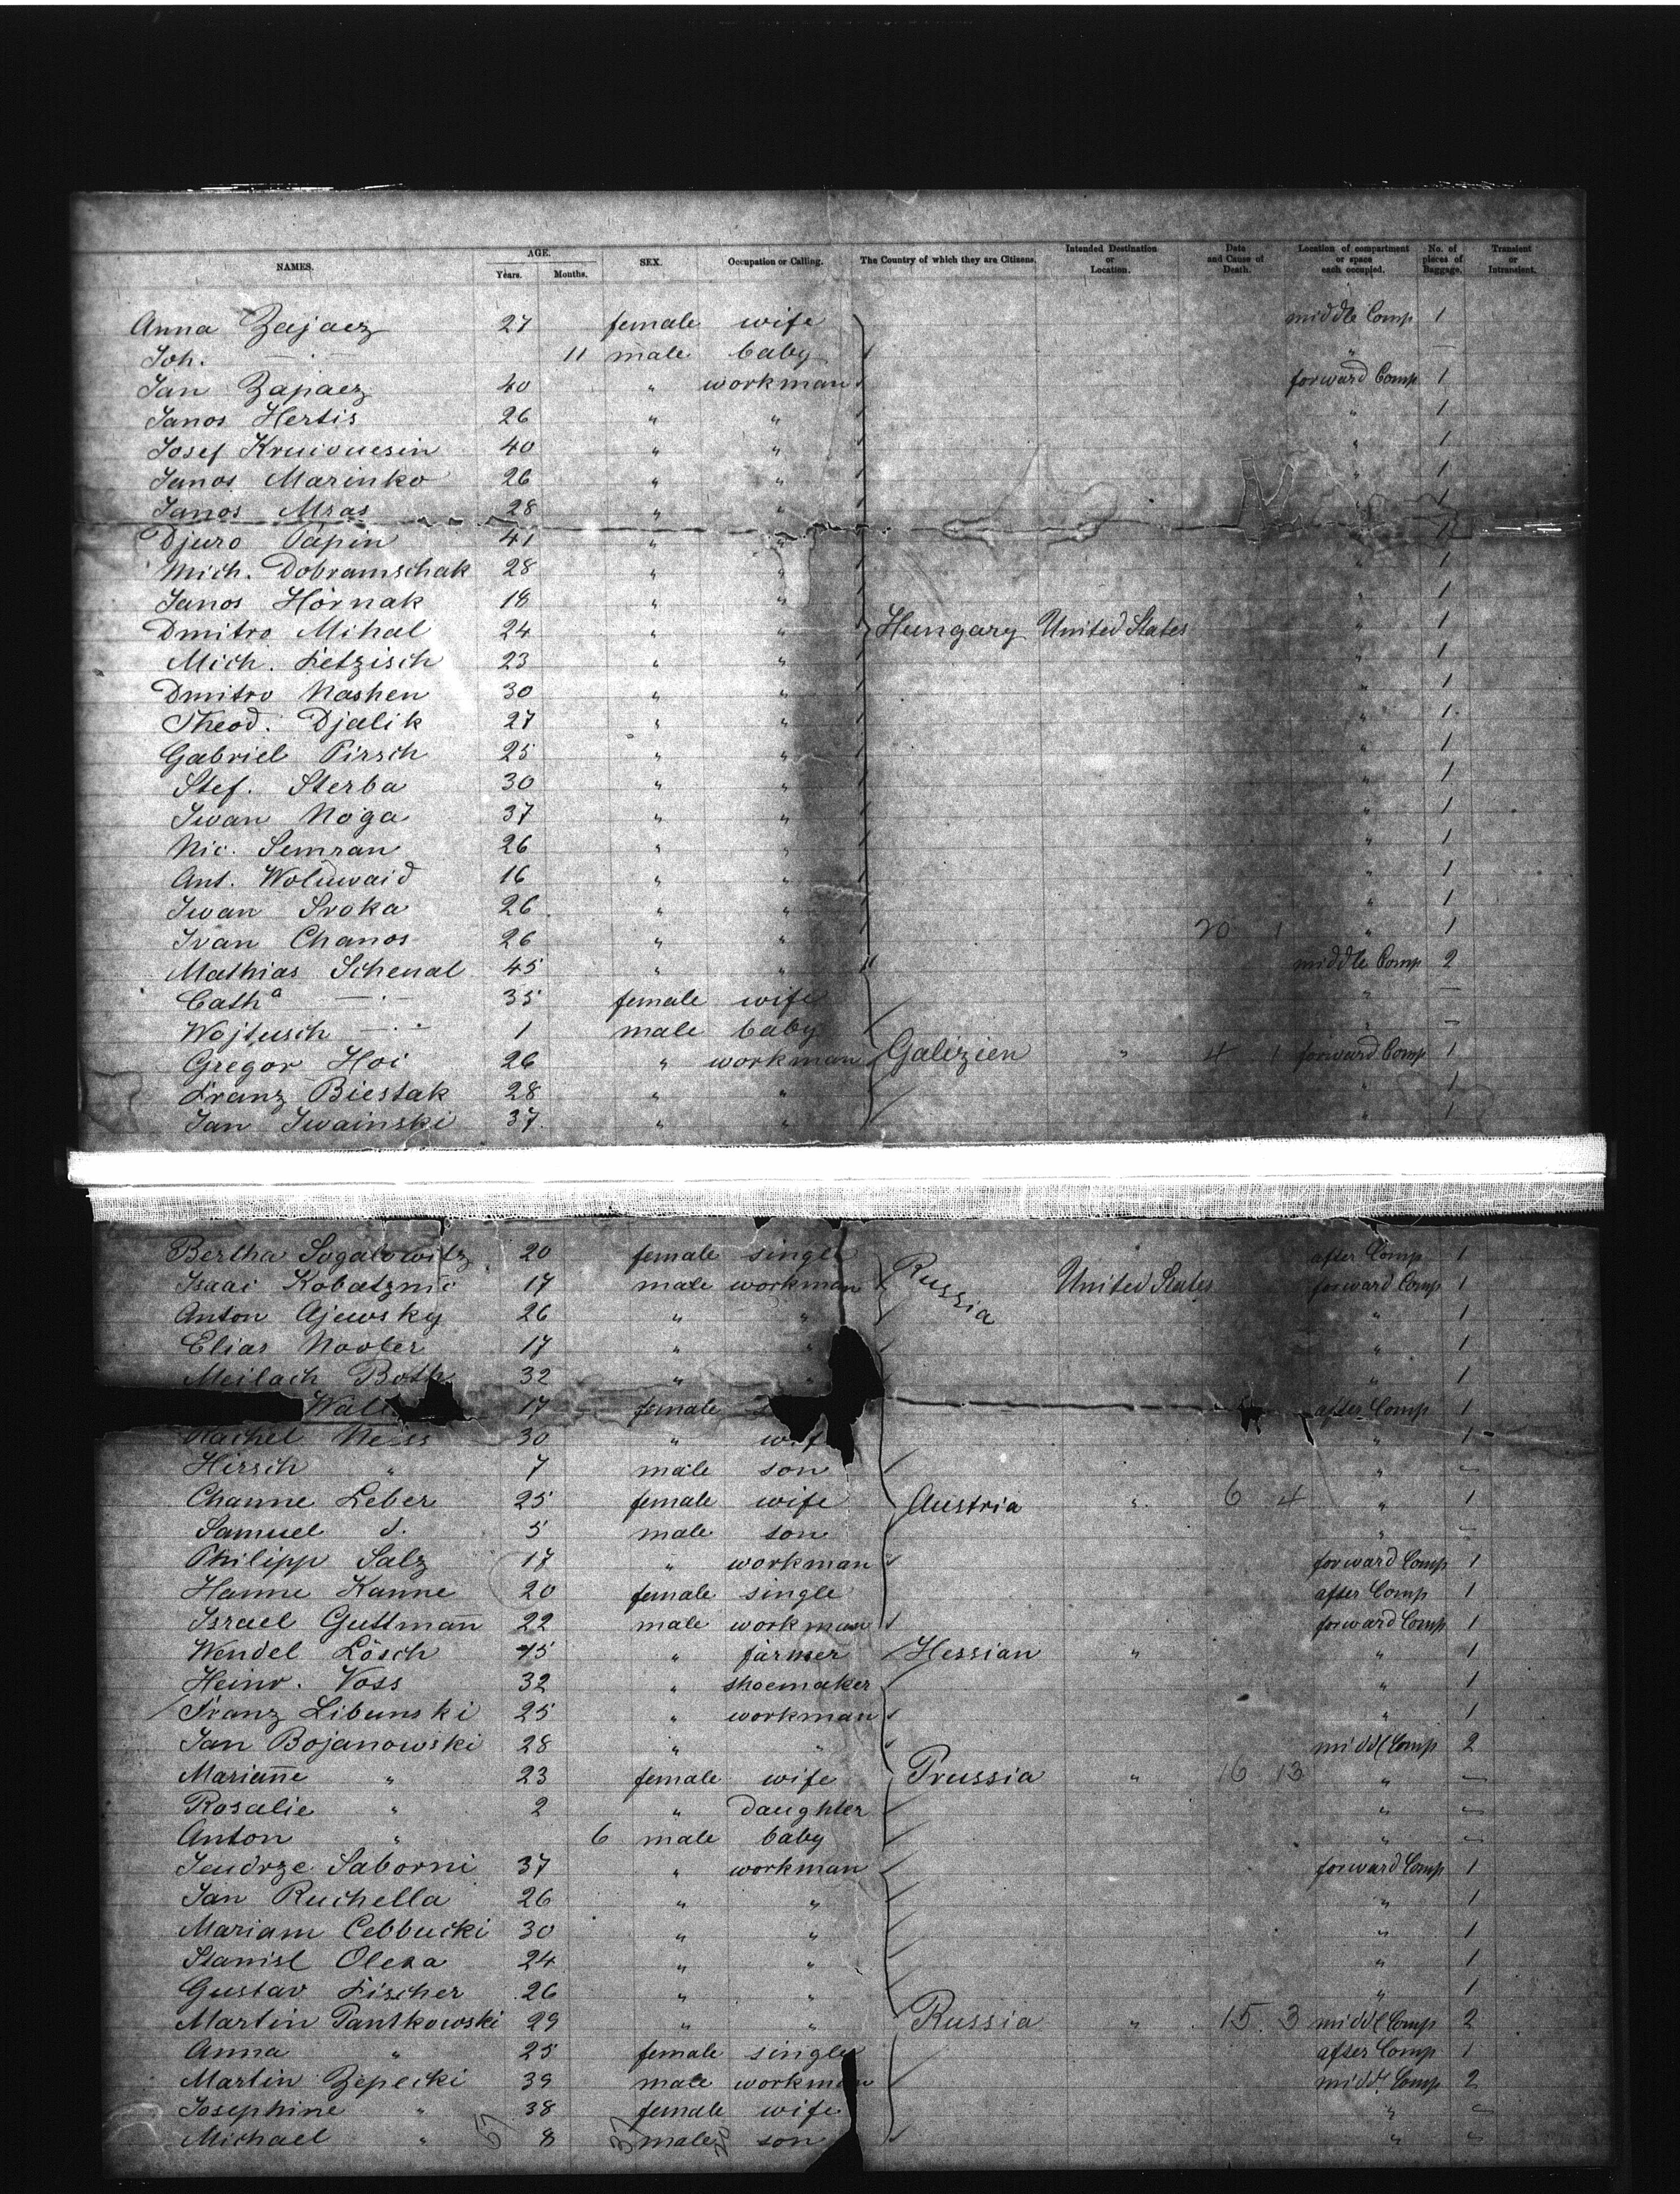 NAMES. AGE. Years. Months. SEX. Occupation or Calling. The Country of which they are Citizens. Intended Destination or Location. Date and Cause of Death. Location of compartment or space each occupied. No. of pieces of Baggage. Transient or Intransient.
Anna Zajacz 27 female wife middle Comp 1
Joh. — · — 11 male baby " —
Jan Zapaez 40 " workman forward Comp 1
Janos Hertis 26 " " " 1
Josef 40 " " " 1
Janos Marinko 26 " " " 1
Janos Mras 28 " " " 1
Djuro Papin 41 " " " 1
Mich. Dobramschak 28 " " " 1
Janos Hornak 18 " " " 1
Dmitro Mihal 24 " " Hungary United States " 1
Mich. Fetzisch 23 " " " 1
Dmitro Nashen 30 " " " 1
Theod. Djalik 27 " " " 1
Gabriel Pirsch 25 " " " 1
Stef. Sterba 30 " " " 1
Iwan Noga 37 " " " 1
Nic. Semran 26 " " " 1
Ant. 16 " " " 1
Iwan Sroka 26 " " " 1
Ivan Chanos 26 " " 20 1 " 1
Mathias Schenal 45 " " middle Comp 2
Cathª — · — 35 female wife " —
Wojtusch — · " 1 male baby " —
Gregor Hoi 26 " workman Galizien " 4 1 forward Comp 1
Franz Biestak 28 " " " 1
Jan Iwainski 37 " " " 1
Bertha Sogalowitz 20 female single after Comp 1
Isaac Kobatznic 17 male workman Russia United States forward Comp 1
Anton Ajewsky 26 " " " 1
Elias 17 " " " 1
Meilach Both 32 " " " 1
17 female after Comp 1
Rachel Neiss 30 " wife " 1
Hirsch " 7 male son " —
Channe Leber 25 female wife Austria " 6 4 " 1
Samuel d. 5 male son " —
Philipp Salz 17 " workman forward Comp 1
Hanne Kanne 20 female single after Comp 1
Israel Guttmañ 22 male workman forward Comp 1
Wendel Lösch 45 " farmer Hessian " " 1
Heinr. Voss 32 " shoemaker " 1
Franz Libunski 25 " workman " 1
Jan Bojanowski 28 " " middl Comp 2
Mariañe " 23 female wife Prussia " 16 13 " —
Rosalie " 2 " daughter " —
Anton " 6 male baby " —
Jendrze Saborni 37 " workman forward Comp 1
Jan Ruchella 26 " " " 1
Mariam Cebbucki 30 " " " 1
Stanisl Olexa 24 " " " 1
Gustav Fischer 26 " " " 1
Martin Pantkowski 29 " " Russia " 15 3 middl Comp 2
Anna " 25 female single after Comp 1
Martin Zepecki 39 male workman middl Comp 2
Josephine " 38 female wife " —
Michael " 8 male son " —